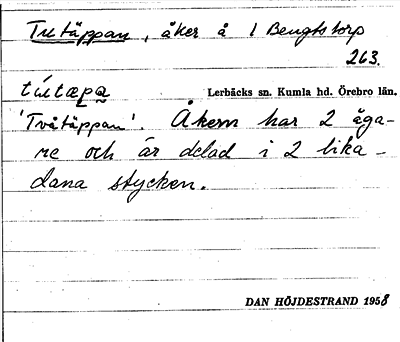 Tutäppan, åker å 1 Bengtstorp
263.
Lerbäcks sn. Kumla hd. Örebro län.
'Tvåtäppan'. Åkern har 2 äga-
re och är delad i 2 lika-
dana stycken.
DAN HÖJDESTRAND 1958